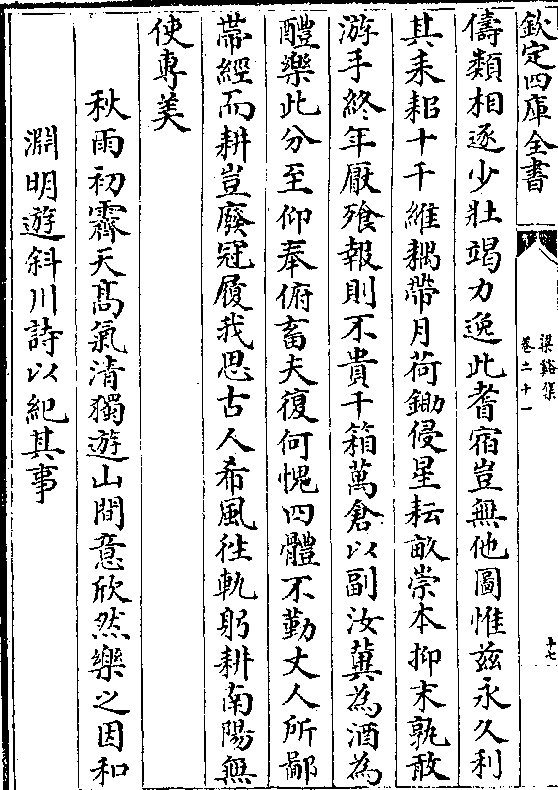 欽定四庫全書
梁谿集
卷二十一
十七
儔類相逐少壯竭力逸此耆宿豈無他圖惟兹永久利
其耒耜十千維耦帶月荷鋤侵星耘畝崇本抑末孰敢
游手終年厭飱報則不貴千箱萬倉以副汝冀為酒為
醴樂此分至仰奉俯畜夫復何愧四體不勤丈人所鄙
帶經而耕豈廢冠履我思古人希風往軌躬耕南陽無
使專美
秋雨初霽天髙氣清獨遊山間意欣然樂之因和
淵明遊斜川詩以紀其事